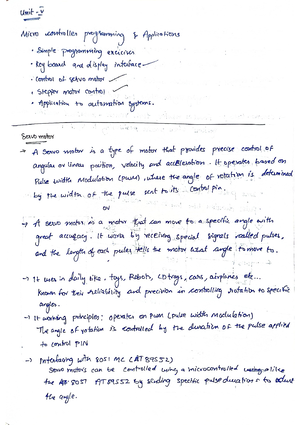 Unit - V
Micro controller programming & Applications
• Simple programming exercises
• Key board and display interface
• Control of servo motor
• Stepper motor control
• Application to automation systems.
Servo motor
→ A Servo motor is a type of motor that provides precise control of
angular or linear position, velocity and acceleration. It operates based on
Pulse Width Modulation (PWM), where the angle of rotation is determined
by the width of the pulse sent to its control pin.
or
→ A servo motor is a motor that can move to a specific angle with
great accuracy. It works by receiving special signals called pulses,
and the length of each pulse tells the motor what angle to move to.
→ It uses in daily like - toys, Robots, CD trays, cars, airplanes etc...
Known for their reliability and precision in controlling rotation to specific
angles.
→ It working principles: operates on PWM (pulse width modulation)
The angle of rotation is controlled by the duration of the pulse applied
to control PIN
→ Interfacing with 8051 MC (AT89S52)
Servo motors can be controlled using a microcontroller like
the 8051 AT89S52 by sending specific pulse durations to
the angle.